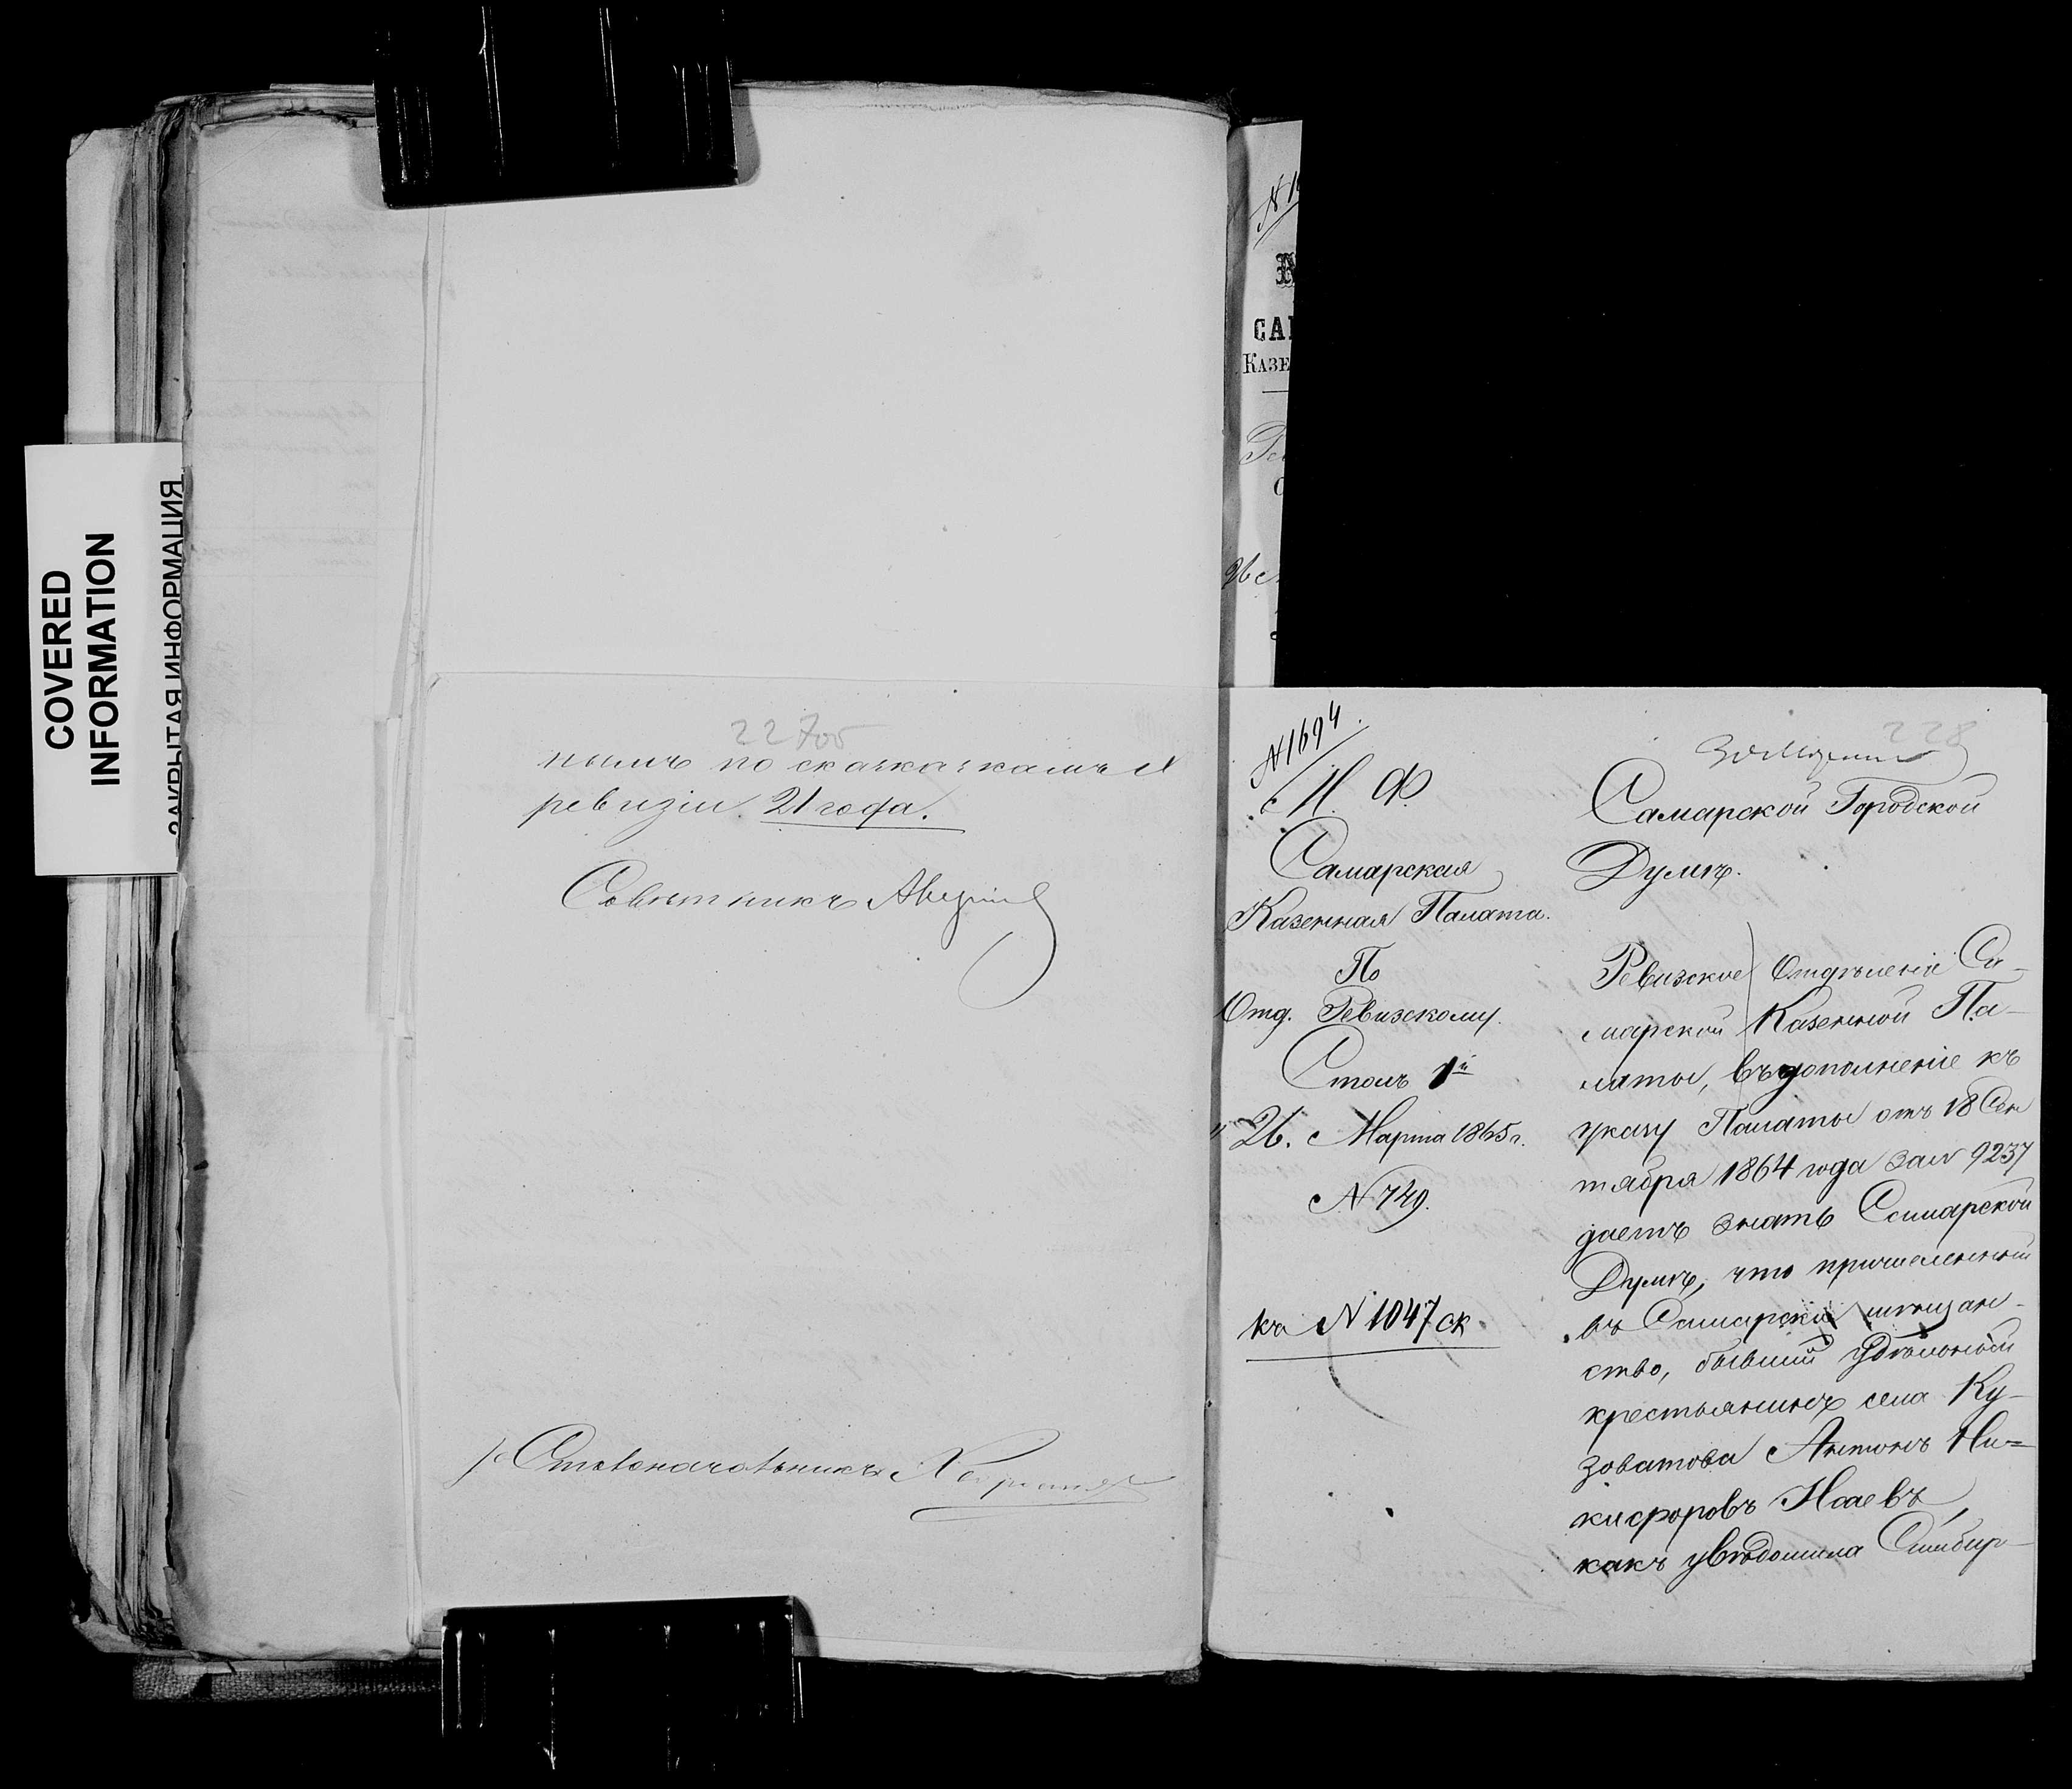 COVERED
INFORMATION
ЗАКРЫТАЯ ИНФОРМАЦИЯ
227об
нымъ по сказкамъ
ревизіи 21 года.
Совѣтникъ
Столоначальникъ
САМ
КАЗЕ
228
№ 1694.
М. Ф.
Самарская
Казенная Палата.
По
Отд. Ревизскому.
Столъ 1й
26. Марта 1865 г.
№ 749.
къ № 1047 ск
Самарской Городской
Думѣ.
Ревизское Отдѣленіе Са-
марской Казенной Па-
латы, въ дополненіе къ
указу Палаты отъ 18 Сен
тября 1864 года за № 9237
даетъ знать Самарской
Думѣ, что причисленный
въ Самарское мѣщан-
ство, бывшій удѣльный
крестьянинъ села Ку-
зоватова Антонъ Ни-
кифоровъ Исаевъ,
какъ увѣдомила Симбир-